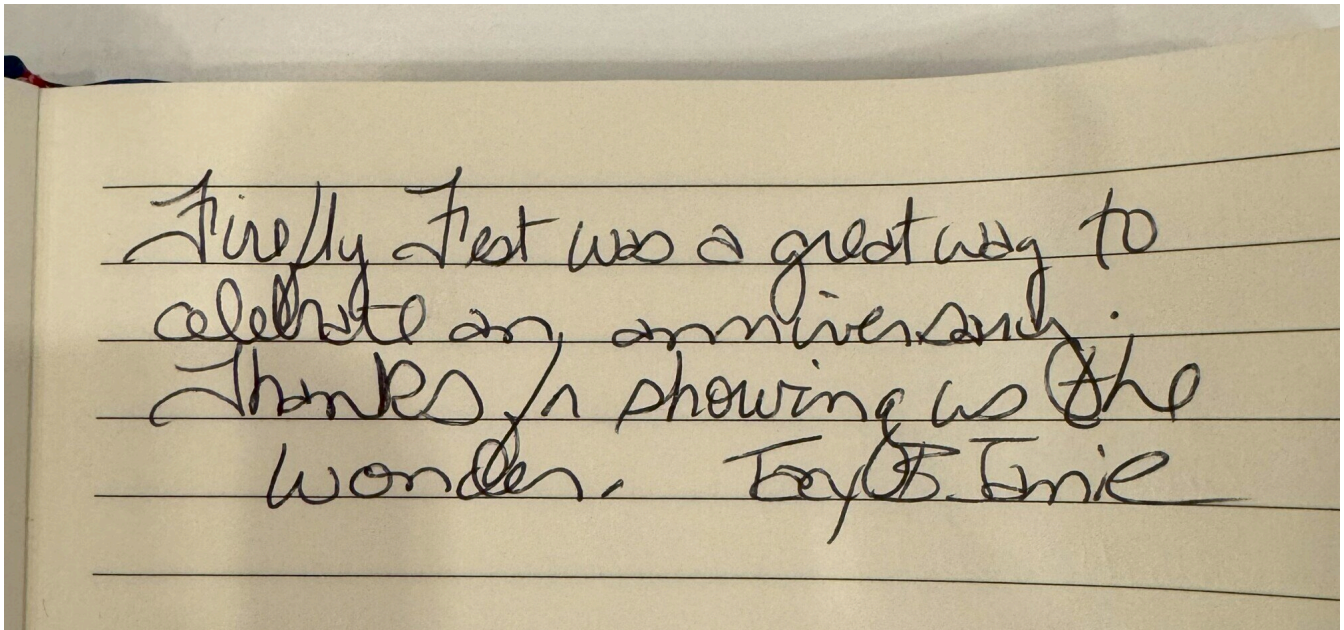 Firefly Fest was a great way to
celebrate an anniversary.
Thanks for showing us the
wonder.